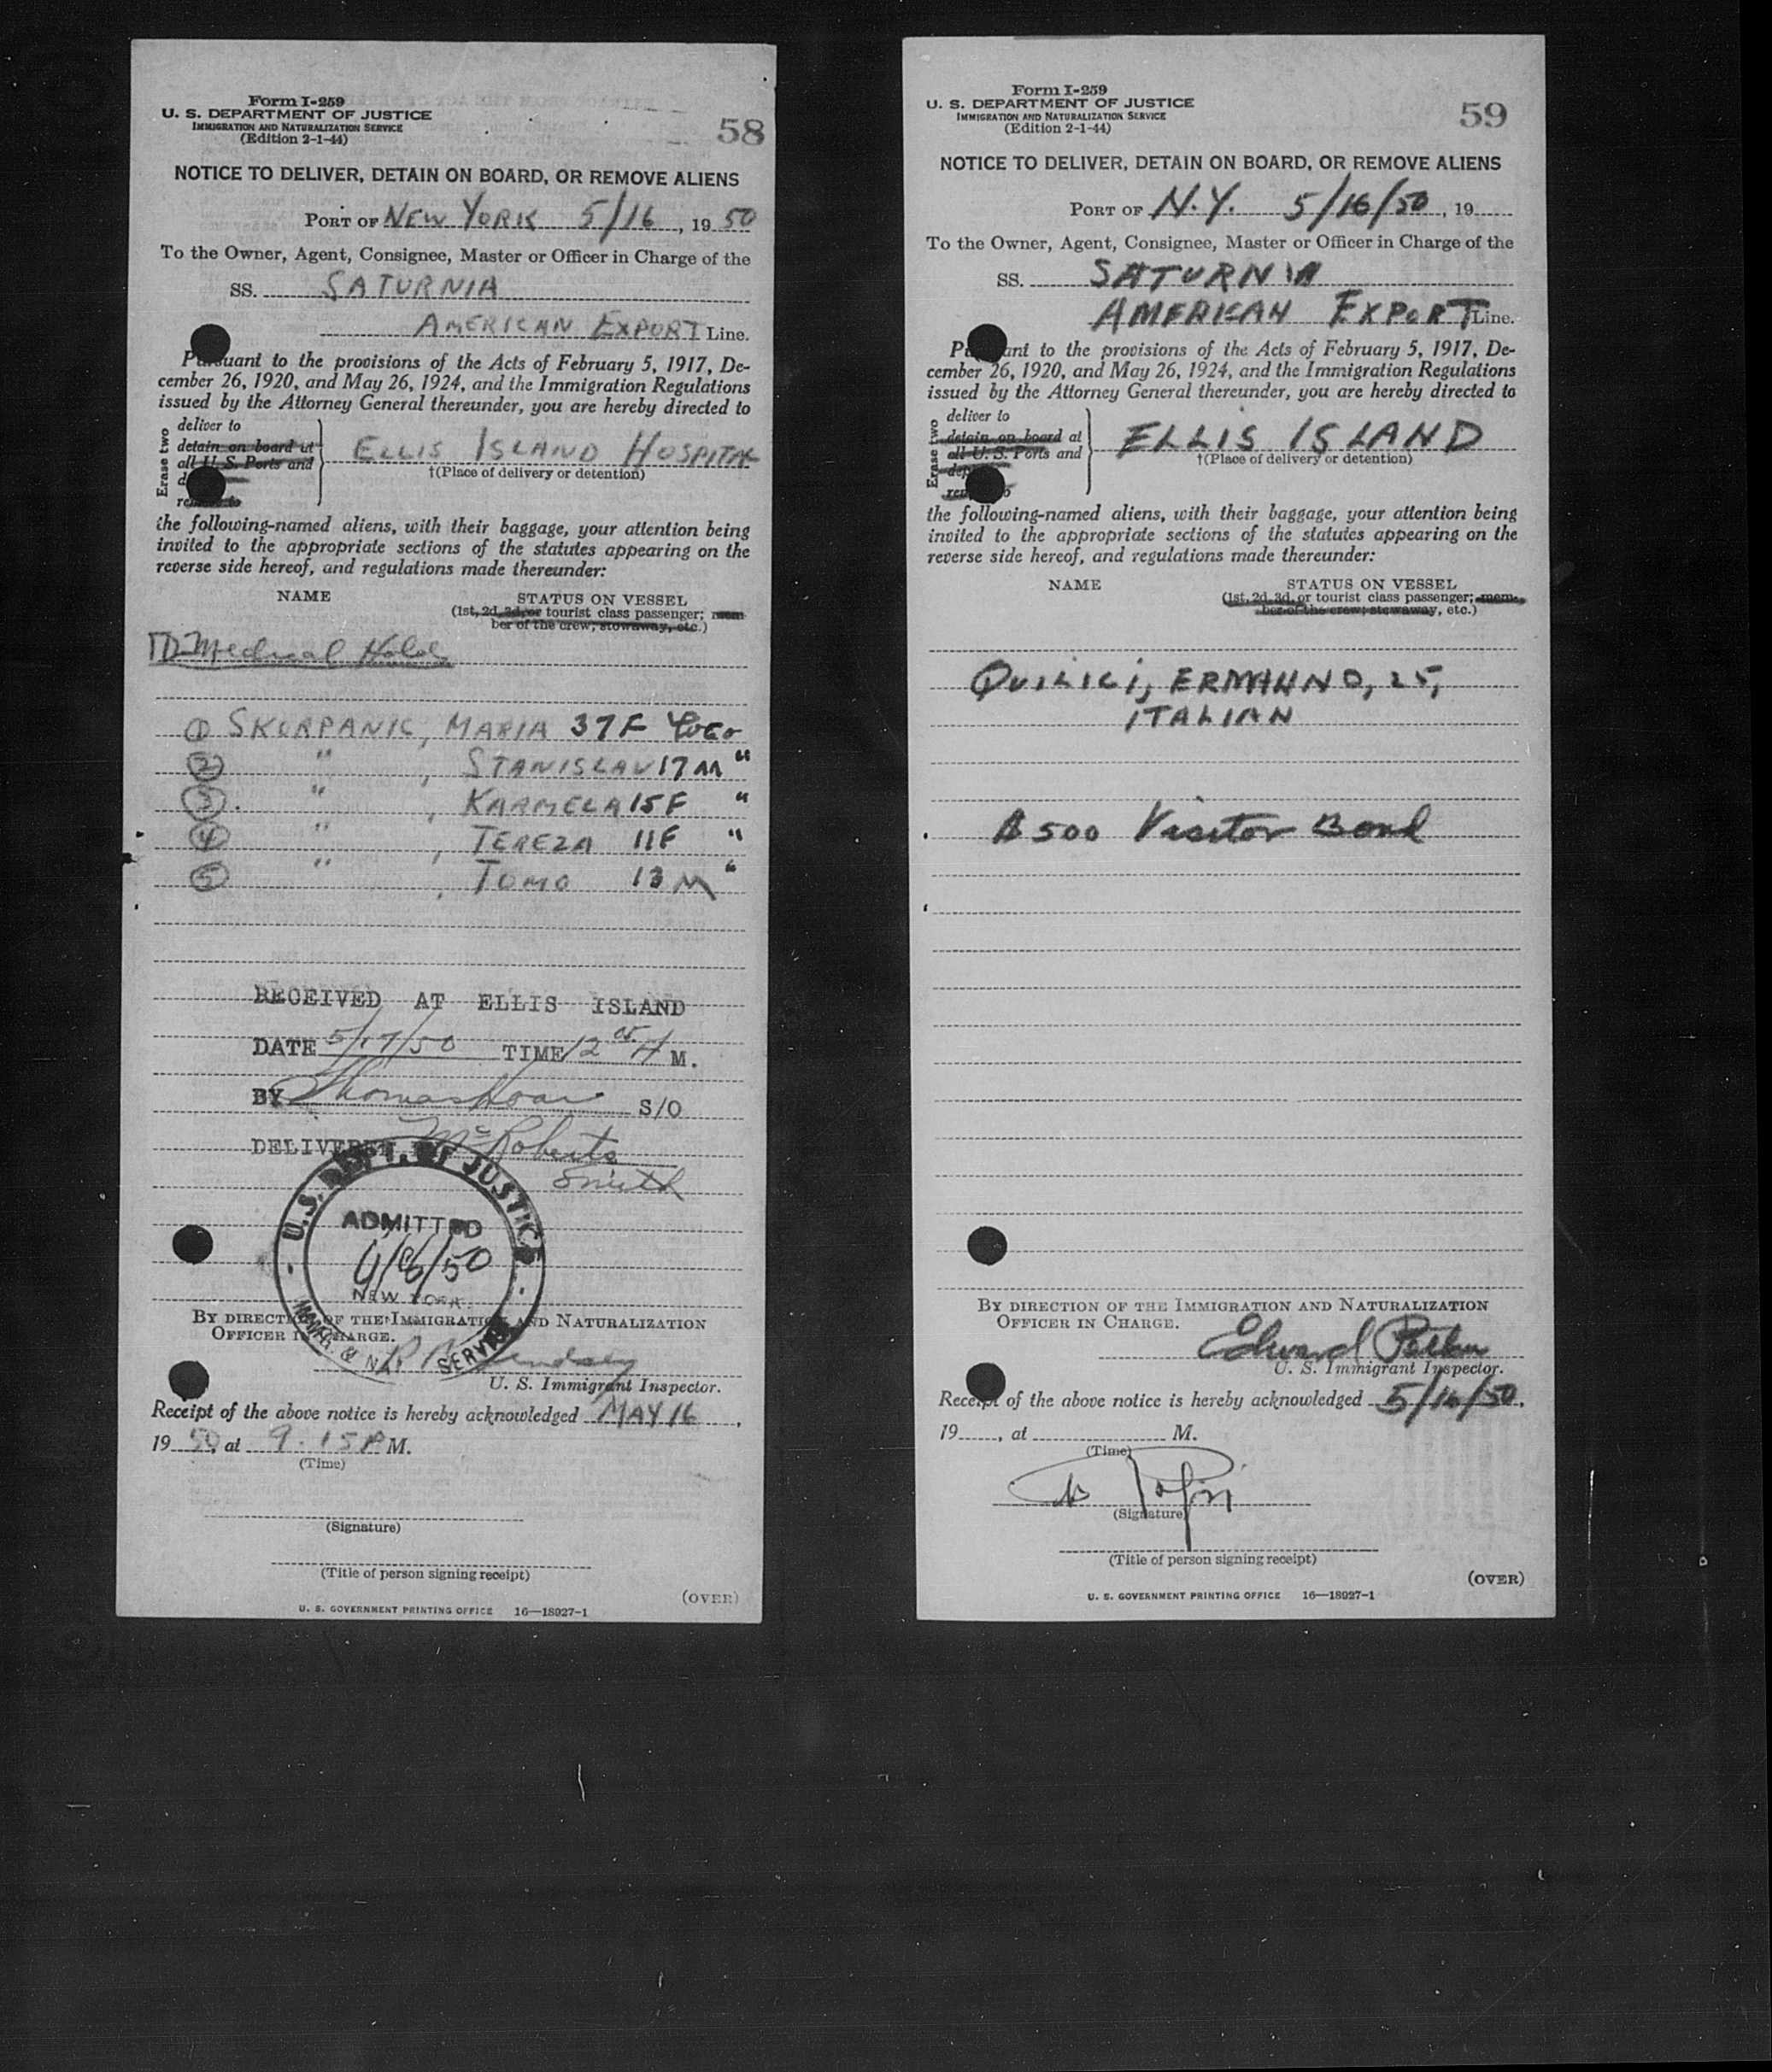 Form I-259
U. S. DEPARTMENT OF JUSTICE
IMMIGRATION AND NATURALIZATION SERVICE
(Edition 2-1-44)
58
NOTICE TO DELIVER, DETAIN ON BOARD, OR REMOVE ALIENS
PORT OF NEW YORK 5/16, 1950
To the Owner, Agent, Consignee, Master or Officer in Charge of the
SS. SATURNIA
AMERICAN EXPORT Line.
Pursuant to the provisions of the Acts of February 5, 1917, De-
cember 26, 1920, and May 26, 1924, and the Immigration Regulations
issued by the Attorney General thereunder, you are hereby directed to
Erase two
deliver to
detain on board at
all U. S. Ports and
remove to
ELLIS ISLAND HOSPITAL
†(Place of delivery or detention)
the following-named aliens, with their baggage, your attention being
invited to the appropriate sections of the statutes appearing on the
reverse side hereof, and regulations made thereunder:
NAME
STATUS ON VESSEL
(1st, 2d, 3d, or tourist class passenger; mem-
ber of the crew; stowaway, etc.)
Medical Hold
① SKORPANIC, MARIA 37 F YUGO
② " , STANISLAV 17 M "
③ " , KARMELA 15 F "
④ " , TEREZA 11 F "
⑤ " , TOMO 13 M "
RECEIVED AT ELLIS ISLAND
DATE 5/17/50 TIME 12 05 A M.
BY Thomas Hoar S/O
DELIVERED McRoberts
Smith
U.S. DEPT. OF JUSTICE
ADMITTED
NEW YORK
IMMI. & NAT. SERVICE
BY DIRECTION OF THE IMMIGRATION AND NATURALIZATION
OFFICER IN CHARGE.
U. S. Immigrant Inspector.
Receipt of the above notice is hereby acknowledged MAY 16,
1950, at 9.15 P M.
(Time)
(Signature)
(Title of person signing receipt)
(OVER)
U. S. GOVERNMENT PRINTING OFFICE 16—18927-1
Form I-259
U. S. DEPARTMENT OF JUSTICE
IMMIGRATION AND NATURALIZATION SERVICE
(Edition 2-1-44)
59
NOTICE TO DELIVER, DETAIN ON BOARD, OR REMOVE ALIENS
PORT OF N.Y. 5/16/50, 19
To the Owner, Agent, Consignee, Master or Officer in Charge of the
SS. SATURNIA
AMERICAN EXPORT Line.
Pursuant to the provisions of the Acts of February 5, 1917, De-
cember 26, 1920, and May 26, 1924, and the Immigration Regulations
issued by the Attorney General thereunder, you are hereby directed to
Erase two
deliver to
detain on board at
all U. S. Ports and
remove to
ELLIS ISLAND
†(Place of delivery or detention)
the following-named aliens, with their baggage, your attention being
invited to the appropriate sections of the statutes appearing on the
reverse side hereof, and regulations made thereunder:
NAME
STATUS ON VESSEL
(1st, 2d, 3d, or tourist class passenger; mem-
ber of the crew; stowaway, etc.)
QUILICI, ERMANNO, 25,
ITALIAN
$500 Visitor Bond
BY DIRECTION OF THE IMMIGRATION AND NATURALIZATION
OFFICER IN CHARGE.
Edward
U. S. Immigrant Inspector.
Receipt of the above notice is hereby acknowledged 5/16/50,
19, at M.
(Time)
(Signature)
(Title of person signing receipt)
(OVER)
U. S. GOVERNMENT PRINTING OFFICE 16—18927-1